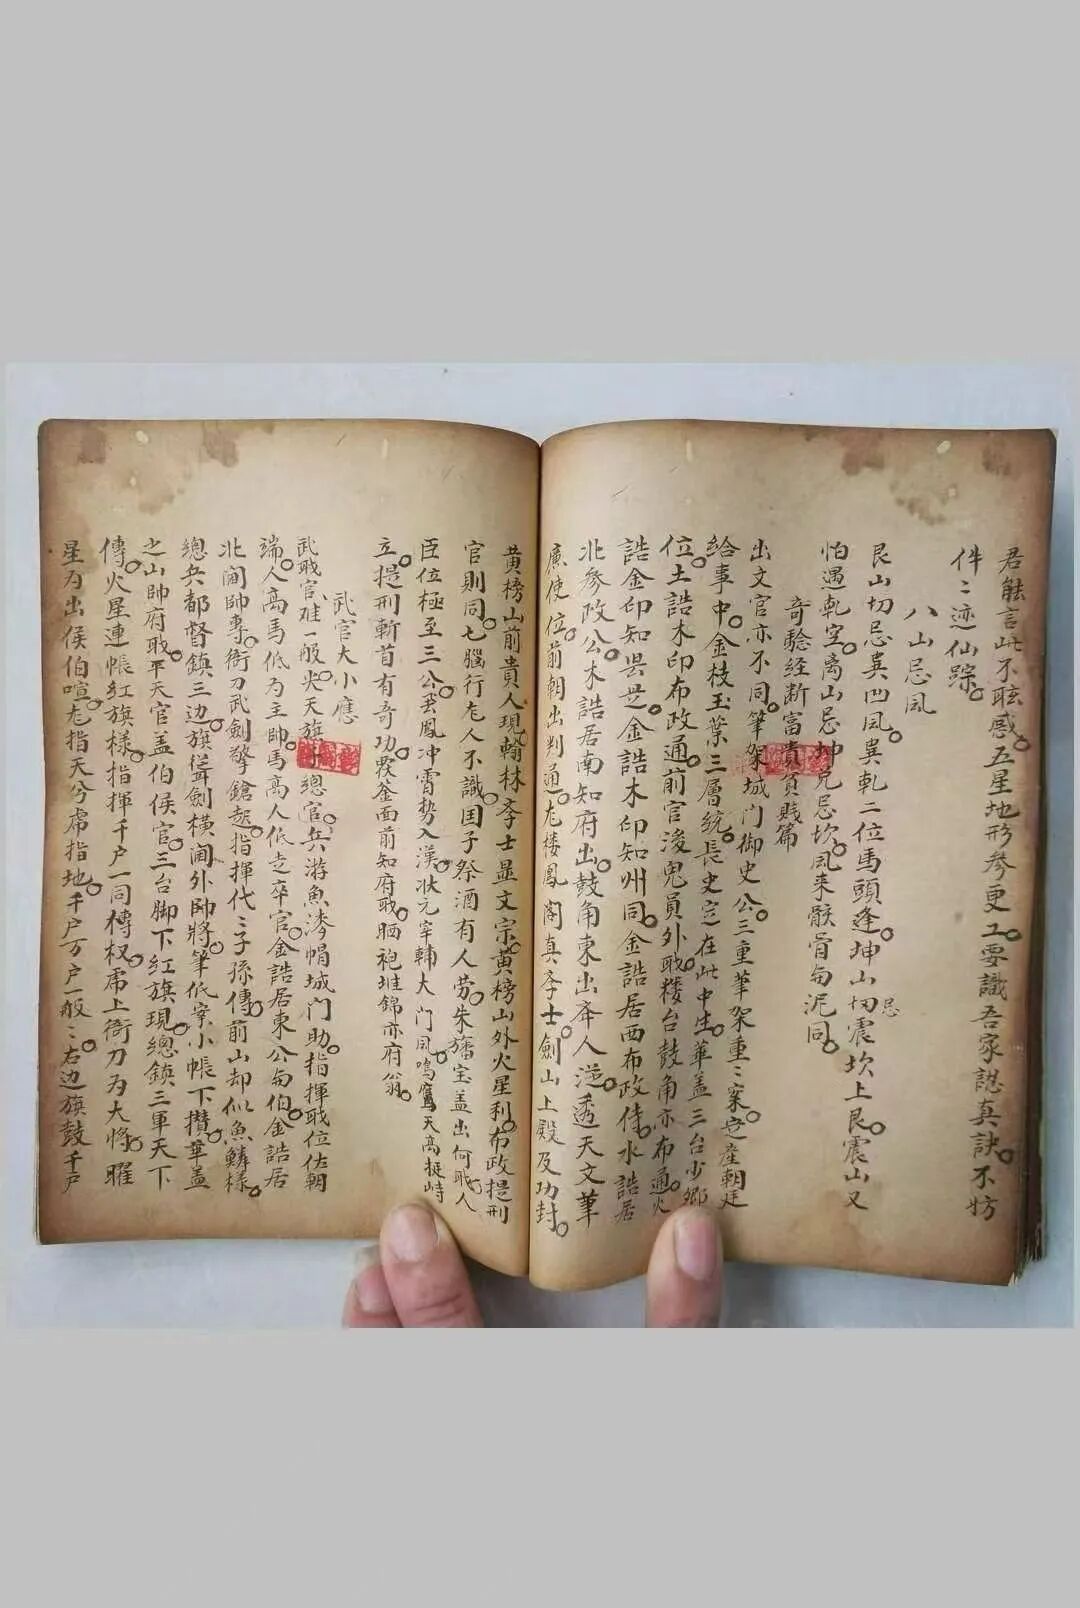 君能言此不眩惑。五星地形參更工。要識吾家諶真訣。不妨
件〻迹仙踪。
八山忌風
艮山切忌巽凹風。巽乾二位馬頭逢。坤山切忌震坎上艮。震山又
怕遇乾空。離山忌坤兌忌坎。風来骸骨如泥同。
奇驗經断富貴貧賎篇
出文官亦不同。筆架城门御史公。三重筆架重〻案。定産朝廷
給事中。金枝玉葉三層統。長史定在此中生。華盖三台少卿
位。土誥木印布政通。前官後鬼員外戝。楼台鼓角亦布通。火
誥金印知縣
北參政公。木誥居南知府出。鼓角東出
廉使位。前朝出判通。龙楼鳳阁真斈士。劍山上殿及功封。
黄榜山前貴人現。翰林斈士显文宗。黄榜山外火星利。布政提刑
官則同。七腦行龙人不識。国子祭酒有人劳。朱旛宝盖出何戝。人
臣位極至三公。丟鳳冲霄勢入漢。状元宰輔大门风。鸣鷹天高挺峙
立。提刑斬首有奇功。覆釜面前知府戝。晒袍堆錦亦府翁。
武官大小應
武戝官难一般。火天旗 總官兵。游魚漆帽城门助。指揮戝位佐朝
端。人高馬低为主帥。馬高人低走卒官。金誥居東公与伯。金誥居
北阃帥專。衙刀武劍擎鎗起。指揮代〻子孫傳。前山却似魚鱗様。
總兵都督鎮三边。旗聳劍橫阃外帥將。筆低穿小帳下攅。華盖
之山帥府戝。平天官盖伯侯官。三台脚下红旗現。總鎮三軍天下
傳。火星連帳红旗様。指揮千户一同傳。权虎上衙刀为大將。曜
星为出侯伯喧。龙指天兮虎指地。千户万户一般〻。右边旗鼓千户